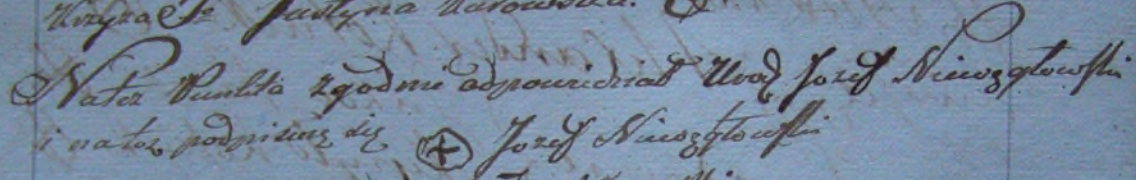 Justyna
Na też Punkta zgodnie odpowiedział Urodz Jozef Niewęgłowski
i na toż podpisuię się Jozef Niewęgłowski